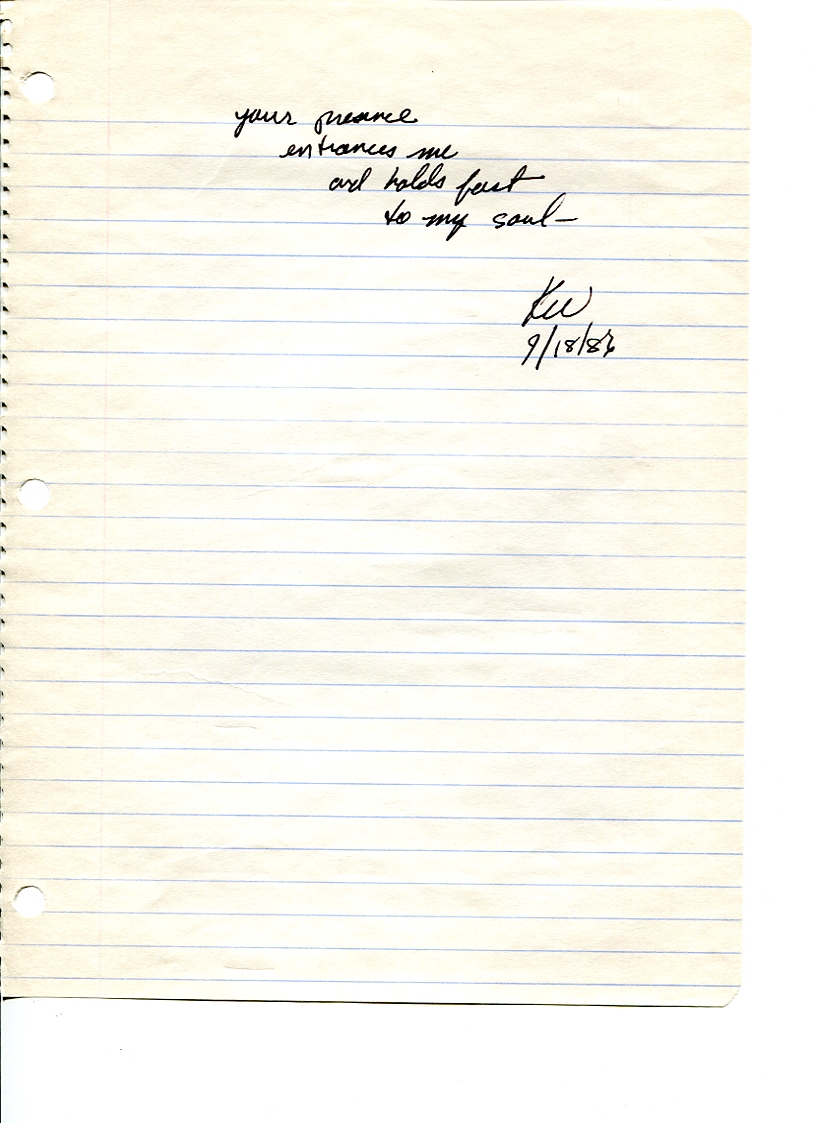 your presence
entrances me
and holds fast
to my soul—
KW
9/18/86